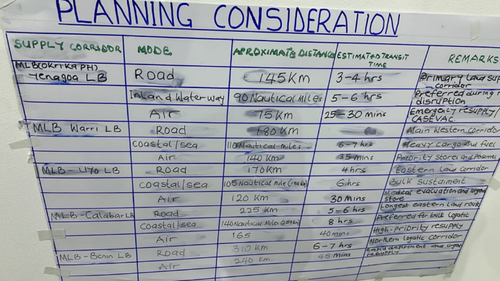 PLANNING CONSIDERATION
SUPPLY CORRIDOR MODE APROXIMATE DISTANCE ESTIMATED TRANSIT TIME REMARKS
MLB(OKRIKA PH) Yenagoa LB Road 145Km 3-4 hrs Primary Land corridor
Inland Waterway 90 Nautical Miles 5-6 hrs Preferred during disruption
Air 75 Km 25-30 mins Emergency resupply/ CASEVAC
MLB Warri LB Road 180 Km Main Western corridor
Coastal/sea 110 Nautical miles 6-7hrs Heavy Cargo and fuel
Air 140 Km 35mins Priority Stores and
MLB-UYO LB Road 170Km 4hrs Eastern Land corridor
Coastal/sea 105 Nautical miles 6hrs Bulk sustainment
Air 120 Km 30 Mins Medical evacuation and urgent store
MLB-Calabar LB Road 225 Km 5-6 hrs Longest eastern land route
Coastal/sea 140 Nautical miles 8 hrs Preferred for bulk logistic
Air 165 40 mins High-priority resupply
MLB-Benin LB Road 310 Km 6-7 hrs Northern logistic corridor
Air 240 Km 45 Mins Rapid deployment and urgent resupply